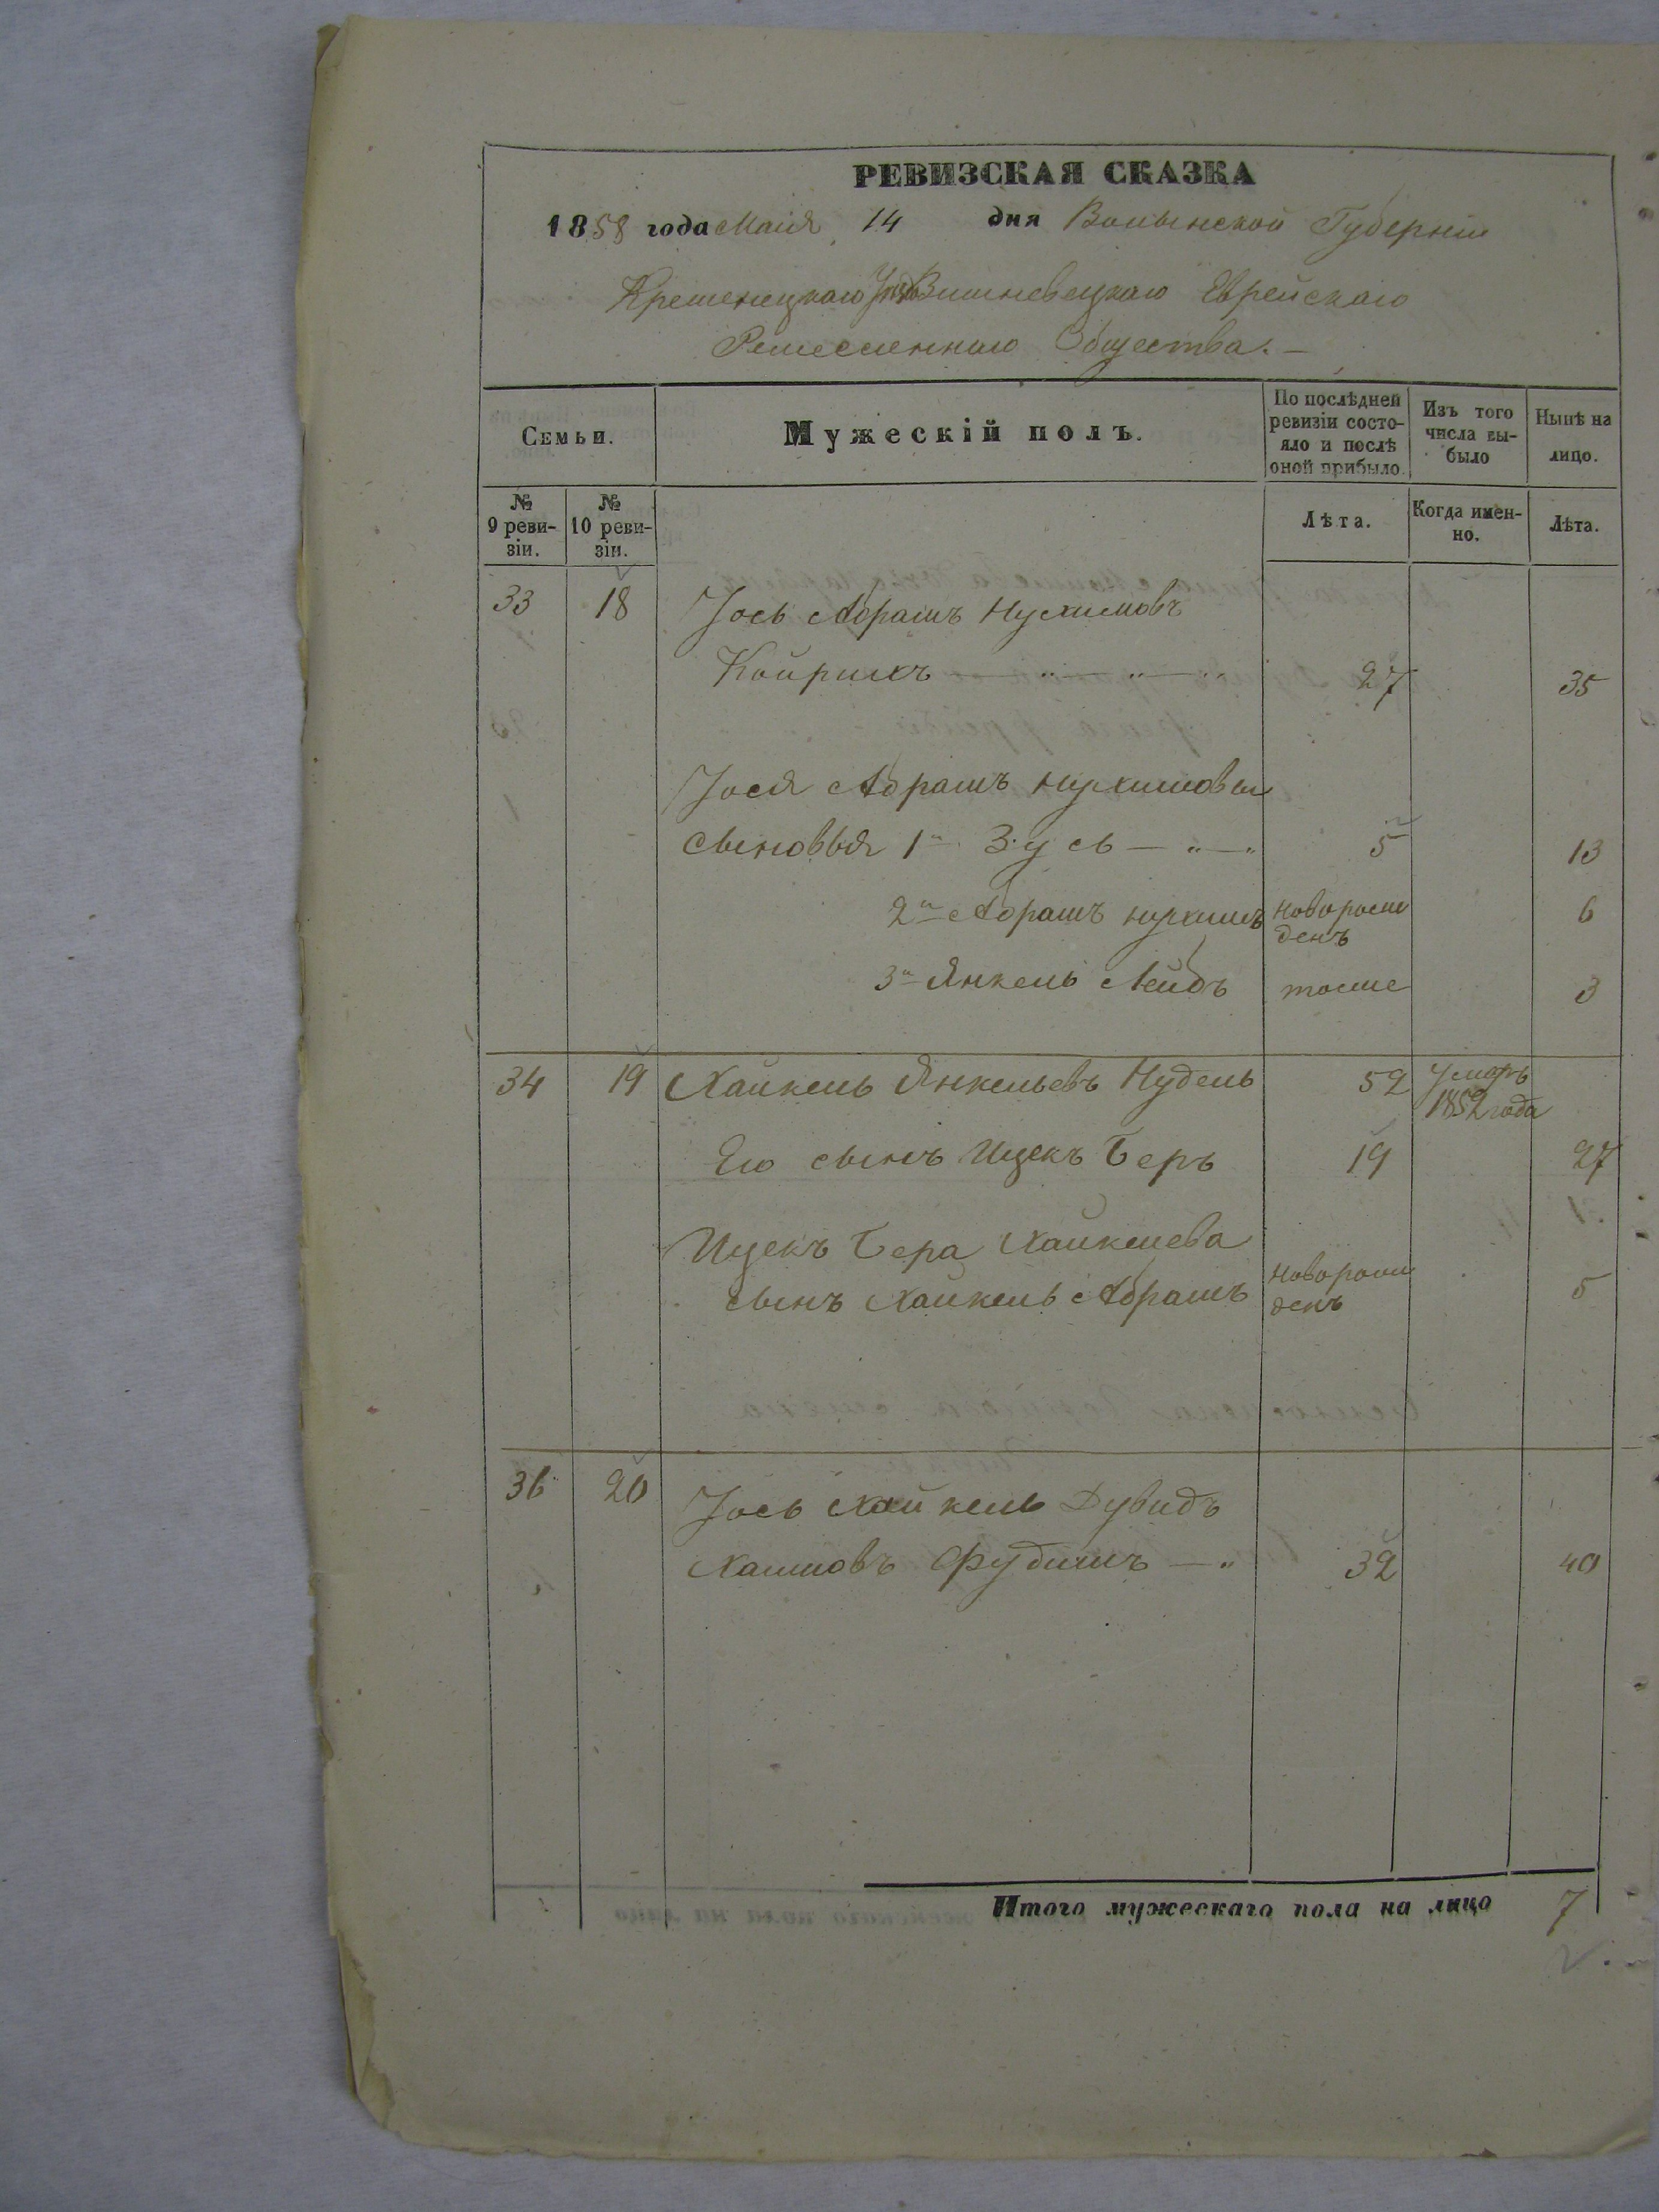 РЕВИЗСКАЯ СКАЗКА
1858 года Маія 14 дня Волынской Губерніи
Кременецкаго Уезда Вишневецкаго Еврейскаго
Ремесленнаго Общества.
Семьи.
Мужескій полъ.
По послѣдней ревизіи состо-яло и послѣ оной прибыло.
Изъ того числа вы-было
Нынѣ на лицо.
№ 9 реви-зіи.
№ 10 реви-зіи.
Лѣта.
Когда имен-но.
Лѣта.
33 18 Іось Абрамъ Нухимовъ
Койрихъ 27 35
Іося Абрамъ Нухимовы
Сыновья 1й Зусь 5 13
2й Абрамъ Нухимъ новорожденъ 6
3й Янкель Лейбъ тоже 3
34 19 Хайкель Янкельевъ Нудель 52 Умеръ 1852 года
Его сынъ Ицекъ Беръ 19 27
Ицекъ Бера Хайкелева
сынъ Хайкель Абрамъ новорожденъ 5
36 20 Іось Хайкель Дувидъ
Хаимовъ Фудимъ 32 40
Итого мужескаго пола на лицо 7